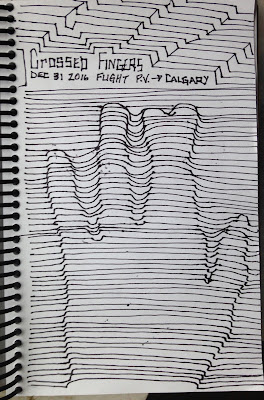 Crossed Fingers
DEC 31 2016 FLIGHT P.V. → CALGARY